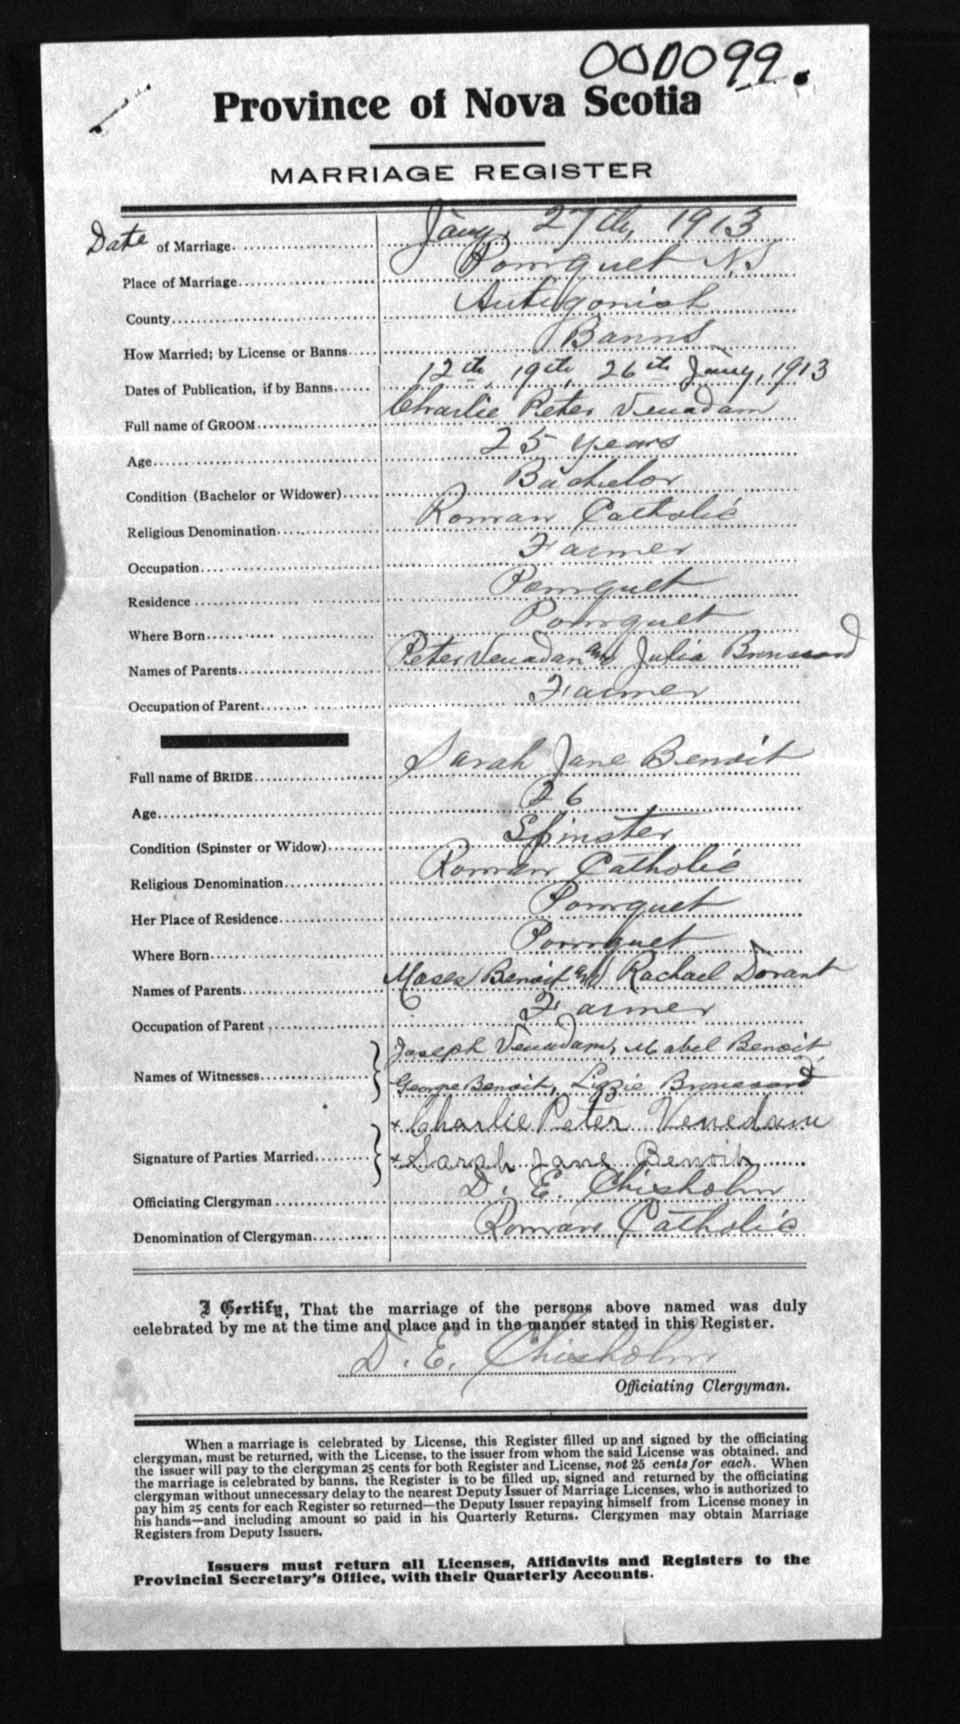 000099.
Province of Nova Scotia
MARRIAGE REGISTER
Date of Marriage. Jany. 27th, 1913
Place of Marriage. Pomquet N.S
County Antigonish
How Married; by License or Banns Banns
Dates of Publication, if by Banns 12th, 19th, 26th Jany, 1913
Full name of GROOM Charlie Peter Venadam
Age 25 years
Condition (Bachelor or Widower) Bachelor
Religious Denomination Roman Catholic
Occupation Farmer
Residence Pomquet
Where Born Pomquet
Names of Parents Peter Venadam and Julia Broussard
Occupation of Parent Farmer
Full name of BRIDE Sarah Jane Benoit
Age 26
Condition (Spinster or Widow) Spinster
Religious Denomination Roman Catholic
Her Place of Residence Pomquet
Where Born Pomquet
Names of Parents Moses Benoit and Rachael Dorant
Occupation of Parent Farmer
Joseph Venadam, Mabel Benoit
Names of Witnesses George Benoit, Lizzie Broussard
x Charlie Peter Venedam
Signature of Parties Married x Sarah Jane Benoit
Officiating Clergyman D. E. Chisholm
Denomination of Clergyman Roman Catholic
I Certify, That the marriage of the persons above named was duly
celebrated by me at the time and place and in the manner stated in this Register.
D. E. Chisholm
Officiating Clergyman.
When a marriage is celebrated by License, this Register filled up and signed by the officiating
clergyman, must be returned, with the License, to the issuer from whom the said License was obtained, and
the issuer will pay to the clergyman 25 cents for both Register and License, not 25 cents for each. When
the marriage is celebrated by banns, the Register is to be filled up, signed and returned by the officiating
clergyman without unnecessary delay to the nearest Deputy Issuer of Marriage Licenses, who is authorized to
pay him 25 cents for each Register so returned—the Deputy Issuer repaying himself from License money in
his hands—and including amount so paid in his Quarterly Returns. Clergymen may obtain Marriage
Registers from Deputy Issuers.
Issuers must return all Licenses, Affidavits and Registers to the
Provincial Secretary's Office, with their Quarterly Accounts.